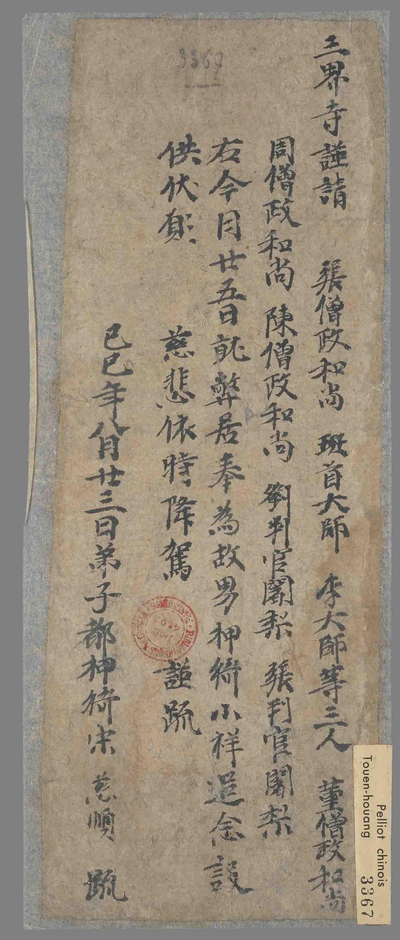 三界寺謹請 張僧政和尚 班首大師 李大師等三人 董僧政和尚
周僧政和尚 陳僧政和尚 劉判官闍梨 張判官闍梨
右今月廿五日就弊居奉為故男押衙小祥追念設
供伏願 慈悲依時降駕 謹䟽
己巳年八月廿三日弟子都押衙宋慈順 䟽
3367
Pelliot chinois
Touen-houang
3367